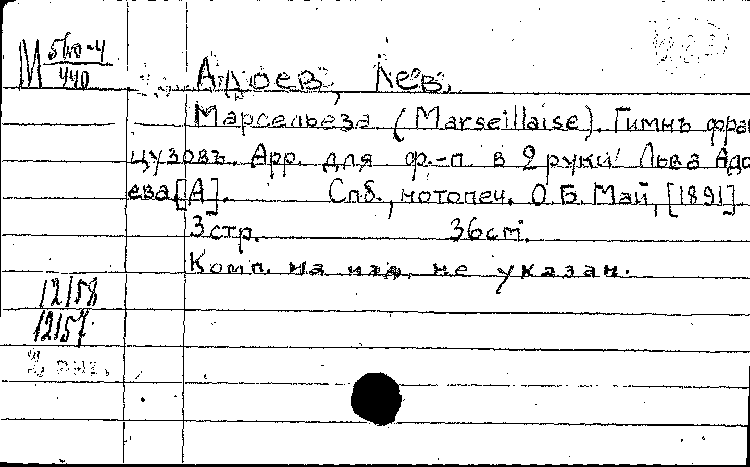 М 560-4
440
Адоев, Лев.
Марсельеза (Marseillaise). Гимнъ фран
цузовъ. Арр. для ф.-п. в 2 руки Льва Адо
ева [А]. Спб., нотопеч. О.Б. Май, [1891].
3 стр. 36 cm.
Комп. на изд. не указан.
12158
12157